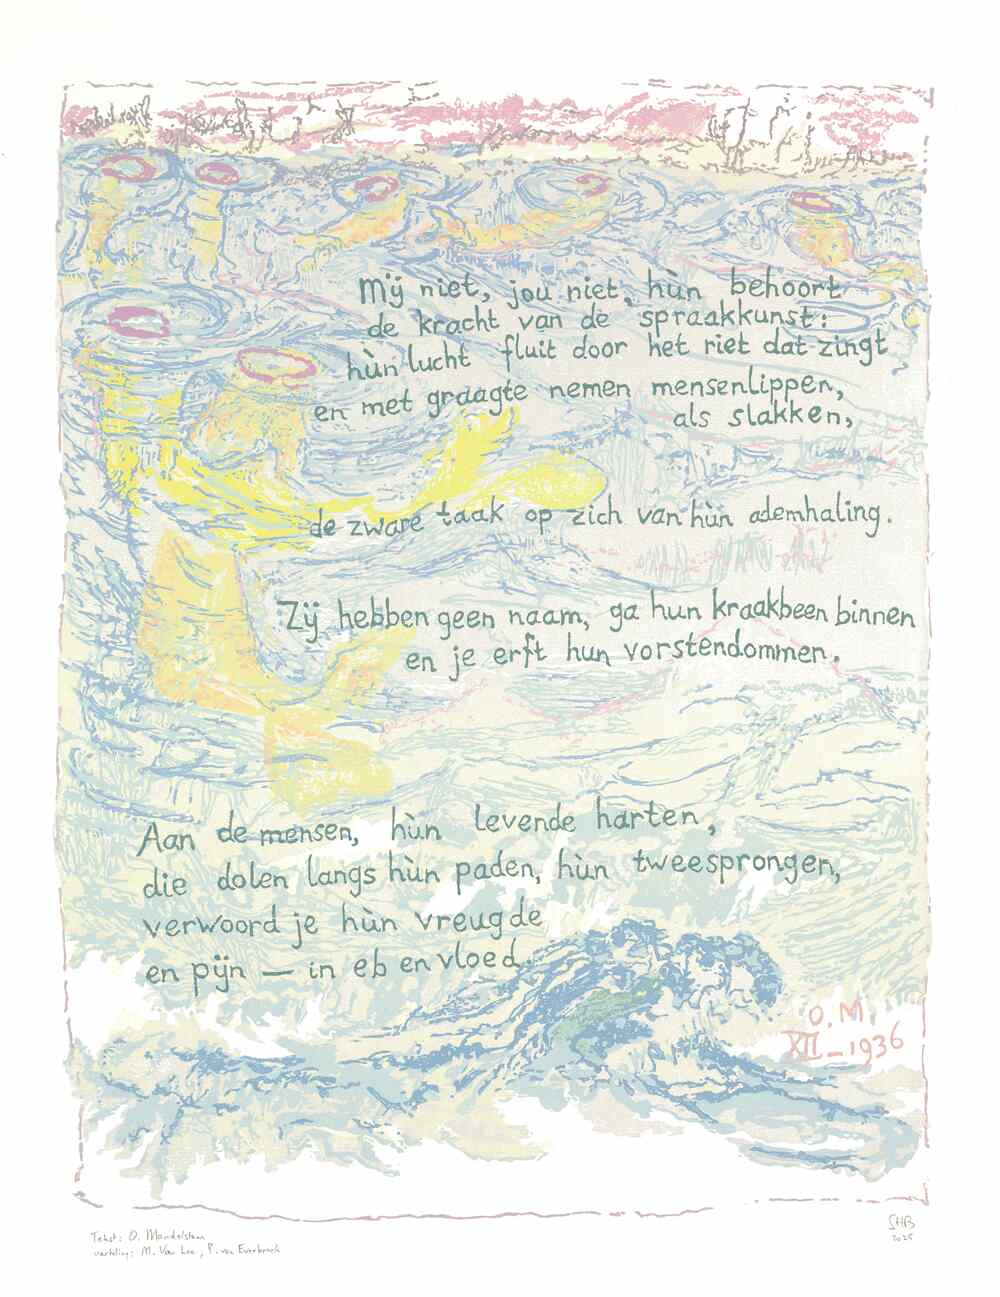 Mÿ niet, jou niet, hùn behoort
de kracht van de spraakkunst:
hùn lucht fluit door het riet dat zingt
en met graagte nemen mensenlippen,
als slakken,
de zware taak op zich van hùn ademhaling.
Zÿ hebben geen naam, ga hun kraakbeen binnen
en je erft hun vorstendommen.
Aan de mensen, hùn levende harten,
die dolen langs hùn paden, hùn tweesprongen,
verwoord je hùn vreugde
en pÿn — in eb en vloed.
O. M.
XII – 1936
Tekst: O. Mandelstam
vertaling: M. Van Loo, P. van
SHB
2025